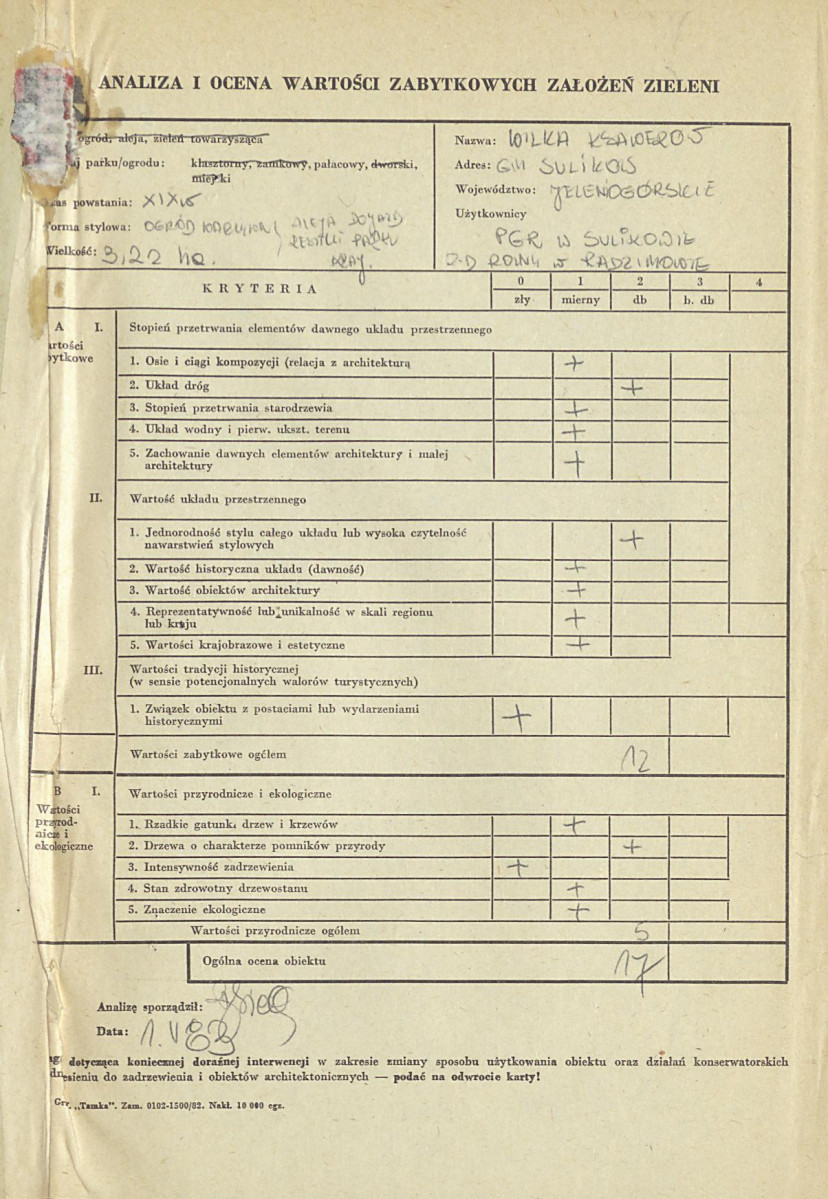 ANALIZA I OCENA WARTOŚCI ZABYTKOWYCH ZAŁOŻEŃ ZIELENI
ogród, aleja, zieleń towarzysząca
parku/ogrodu: klasztorny, zamkowy, pałacowy, dworski,
miejski
powstania: XIX w
forma stylowa: OGRÓD ALEJA DOJAZD
RESZTKI PARKU
Wielkość: 3,22 ha. KRAJ.
Nazwa: WILKA KSAWERÓW
Adres: GM SULIKÓW
Województwo: JELENIOGÓRSKIE
Użytkownicy
PGR W SULIKOWIE
Z-D ROLNY W RADZIMOWIE
KRYTERIA
0 1 2 3 4
zły mierny db b. db
A I. Stopień przetrwania elementów dawnego układu przestrzennego
artości
bytkowe
1. Osie i ciągi kompozycji (relacja z architekturą +
2. Układ dróg +
3. Stopień przetrwania starodrzewia +
4. Układ wodny i pierw. ukszt. terenu +
5. Zachowanie dawnych elementów architektury i małej
architektury +
II. Wartość układu przestrzennego
1. Jednorodność stylu całego układu lub wysoka czytelność
nawarstwień stylowych +
2. Wartość historyczna układu (dawność) +
3. Wartość obiektów architektury +
4. Reprezentatywność lub unikalność w skali regionu
lub kraju +
5. Wartości krajobrazowe i estetyczne +
III. Wartości tradycji historycznej
(w sensie potencjonalnych walorów turystycznych)
1. Związek obiektu z postaciami lub wydarzeniami
historycznymi +
Wartości zabytkowe ogółem 12
B I. Wartości przyrodnicze i ekologiczne
Wartości
przyrod-
nicze i
ekologiczne
1. Rzadkie gatunki drzew i krzewów +
2. Drzewa o charakterze pomników przyrody +
3. Intensywność zadrzewienia +
4. Stan zdrowotny drzewostanu +
5. Znaczenie ekologiczne +
Wartości przyrodnicze ogółem 5
Ogólna ocena obiektu 17
Analizę sporządził:
Data: 1.V
dotycząca koniecznej doraźnej interwencji w zakresie zmiany sposobu użytkowania obiektu oraz działań konserwatorskich
esieniu do zadrzewienia i obiektów architektonicznych — podać na odwrocie karty!
„Tamka”. Zam. 0102-1500/82. Nakł. 10 000 egz.